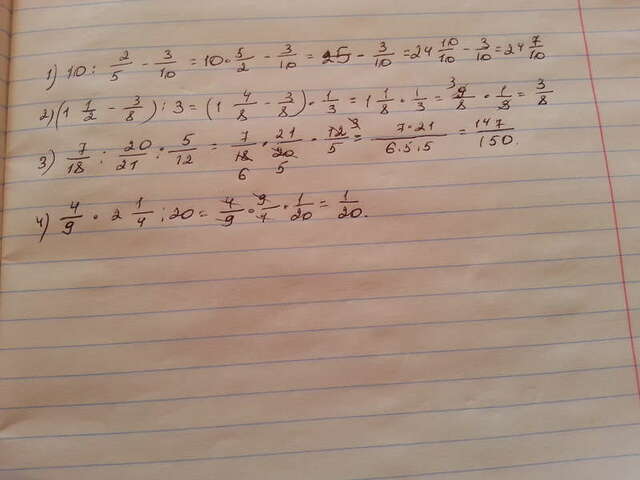 1) 10 : 2/5 - 3/10 = 10 · 5/2 - 3/10 = 25 - 3/10 = 24 10/10 - 3/10 = 24 7/10
2) (1 1/2 - 3/8) : 3 = (1 4/8 - 3/8) · 1/3 = 1 1/8 · 1/3 = 3 9/8 · 1/3 = 3/8
3) 7/18 : 20/21 : 5/12 = 7/18 · 21/20 · 12/5 3 = 7·21/6.5.5 = 147/150.
6 5
4) 4/9 · 2 1/4 : 20 = 4/9 · 9/4 · 1/20 = 1/20.